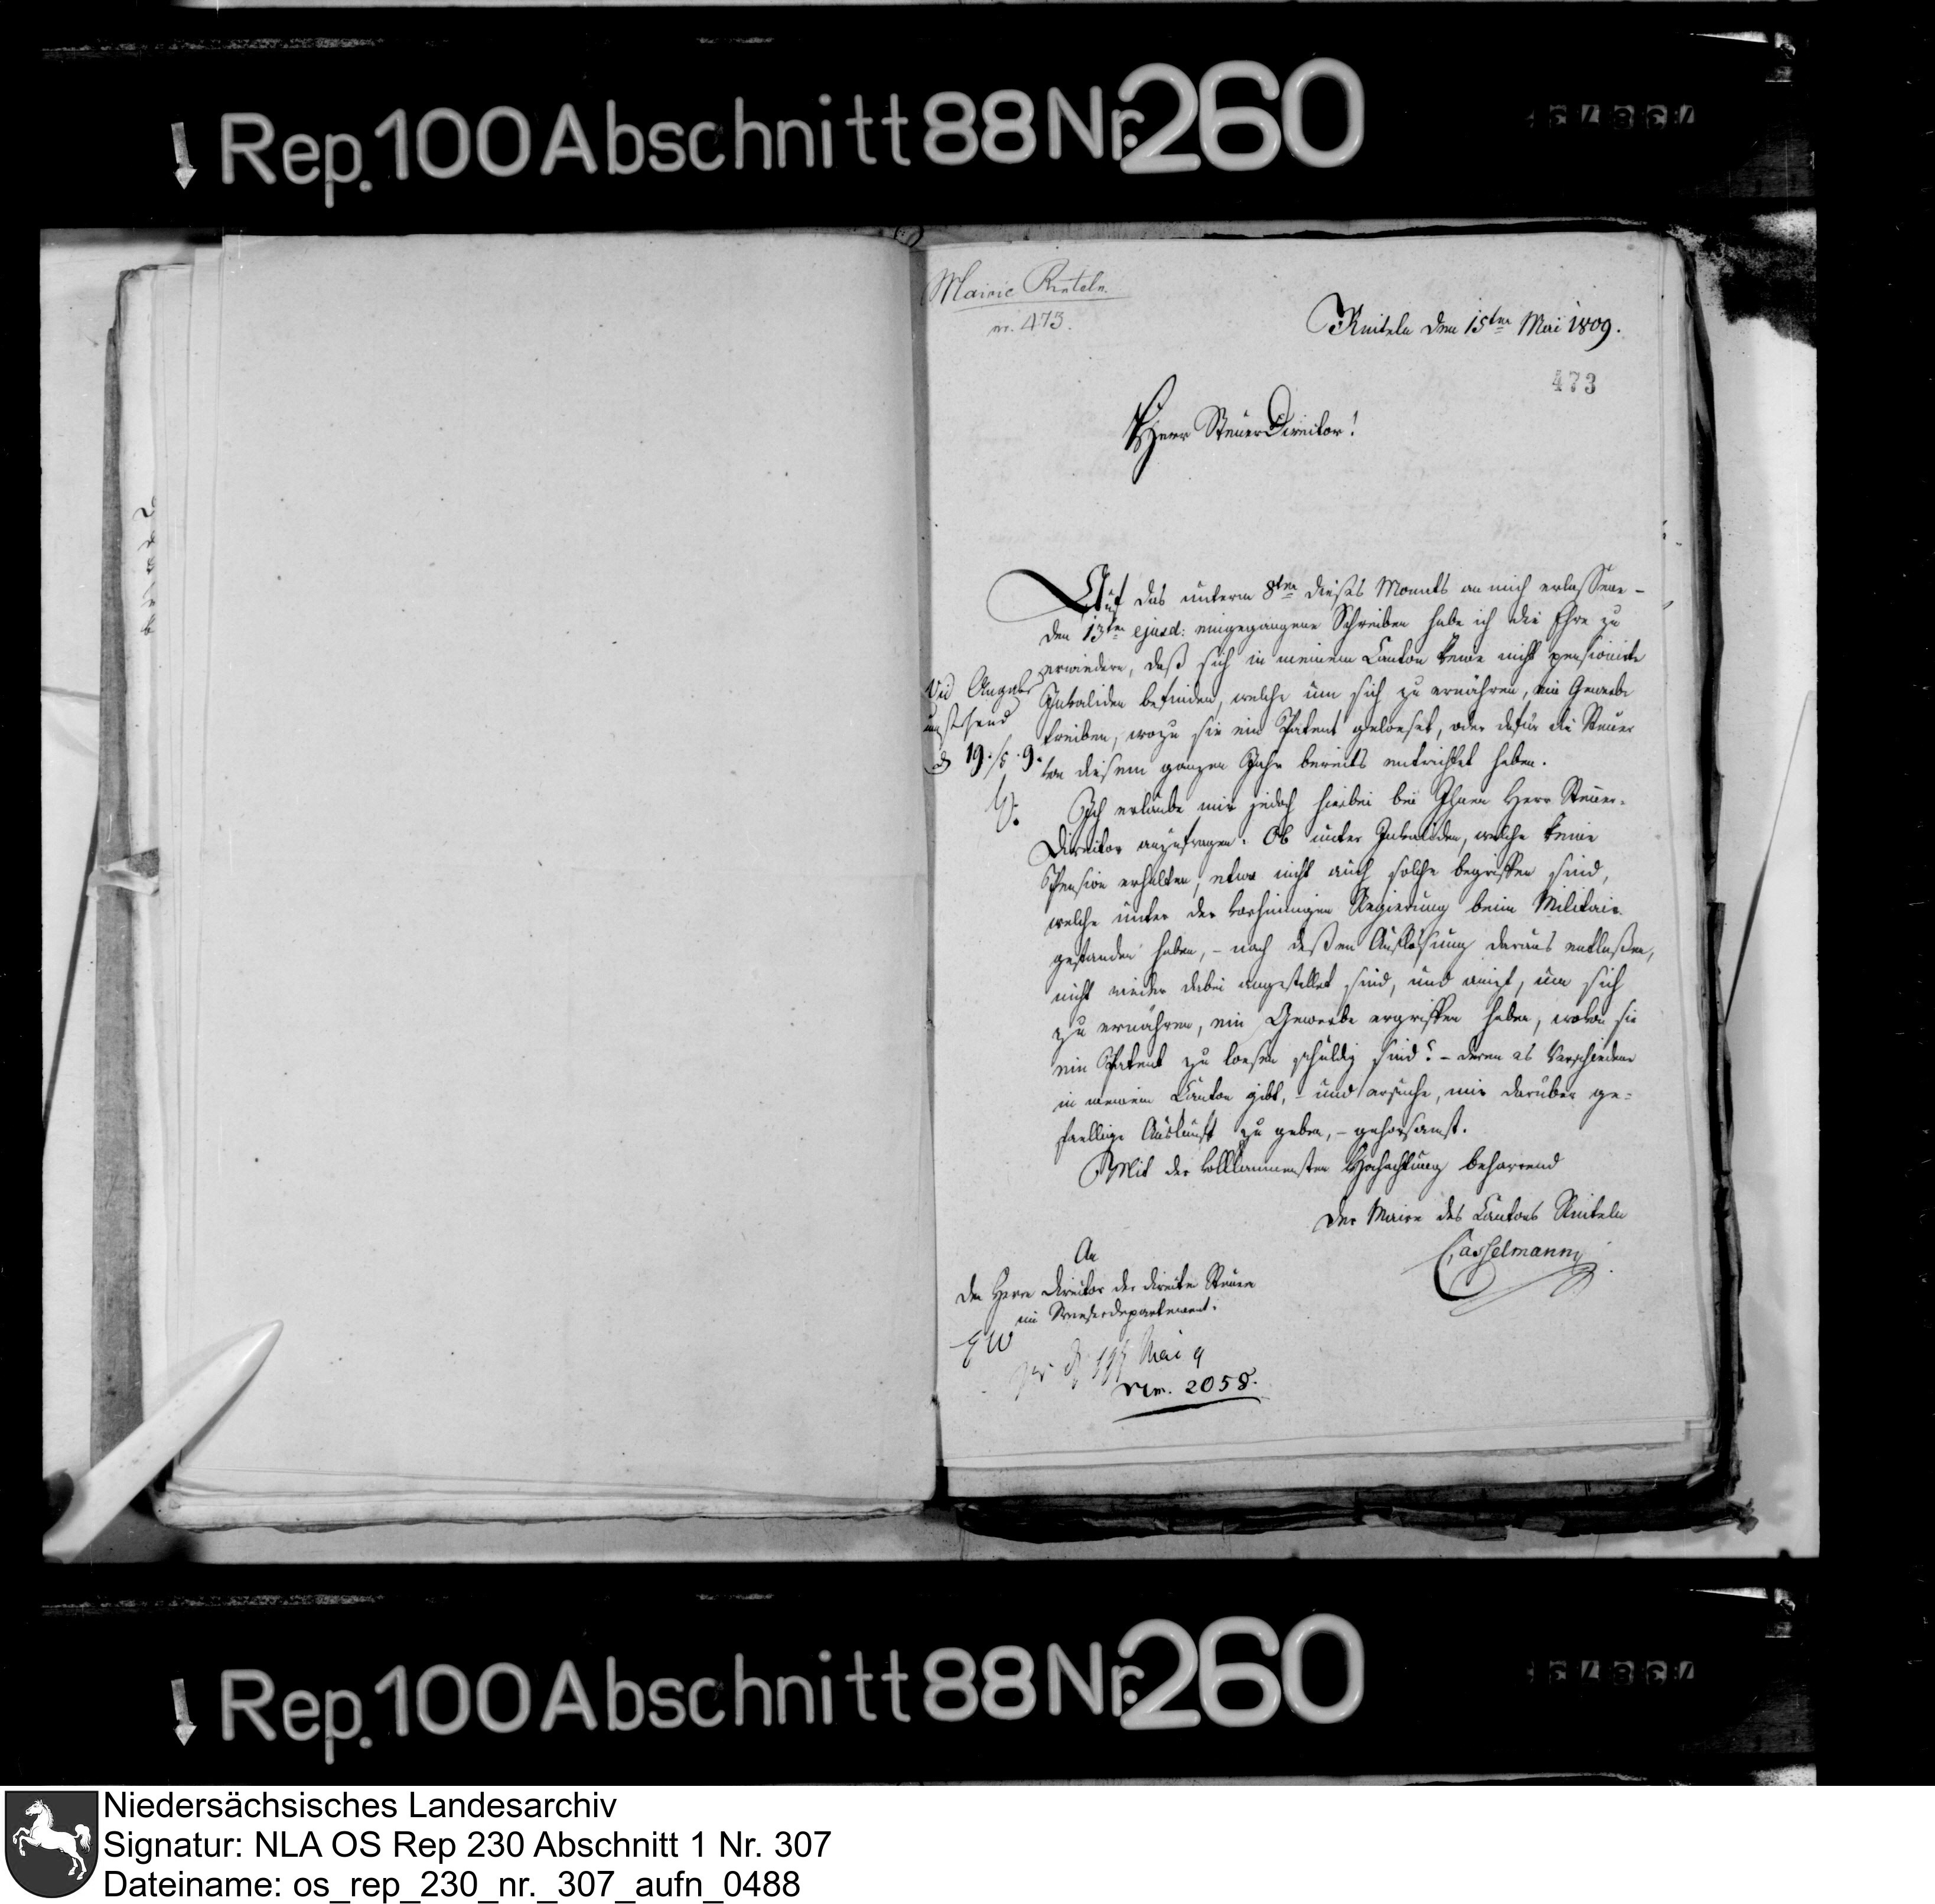 Rep. 100 Abschnitt 88 Nr. 260
Mairie Rinteln
nr. 473.
Rinteln den 15ten Mai 1809.
473
Herr SteuerDirector!
Auf das unterm 8ten dieses Monats an mich erlassene -
den 13ten ejusd: eingegangene Schreiben habe ich die Ehre zu
erwiedern, daß sich in meinem Canton keine nicht pensionirte
Invaliden befinden, welche um sich zu ernähren, ein Gewerbe
treiben, wozu sie ein Patent geloeset, oder dafür die Steuer
von diesem ganzen Jahr bereits entrichtet haben.
19./5. 9.
Ich erlaube mir jedoch hierbei bei Ihnen Herr Steuer-
Director anzufragen: Ob unter Invaliden, welche keine
Pension erhalten, etwa nicht auch solche begriffen sind,
welche unter der vorherigen Regierung beim Militair
gestanden haben, - nach deßen Auflösung daraus entlaßen,
nicht wieder dabei angestellet sind, und jetzt, um sich
zu ernähren, ein Gewerbe ergriffen haben, wovon sie
ein Patent zu loesen schuldig sind? - deren es Verschiedene
in meinem Canton gibt, - und ersuche, mir darüber ge=
faellige Auskunft zu geben, - gehorsamst.
Mit der vollkommensten Hochachtung beharrend
Der Maire des Cantons Rinteln
Casselmann
An
den Herrn Director der directen Steuern
im Weserdepartement.
Mai 9
num. 2058.
Rep. 100 Abschnitt 88 Nr. 260
Niedersächsisches Landesarchiv
Signatur: NLA OS Rep 230 Abschnitt 1 Nr. 307
Dateiname: os_rep_230_nr._307_aufn_0488